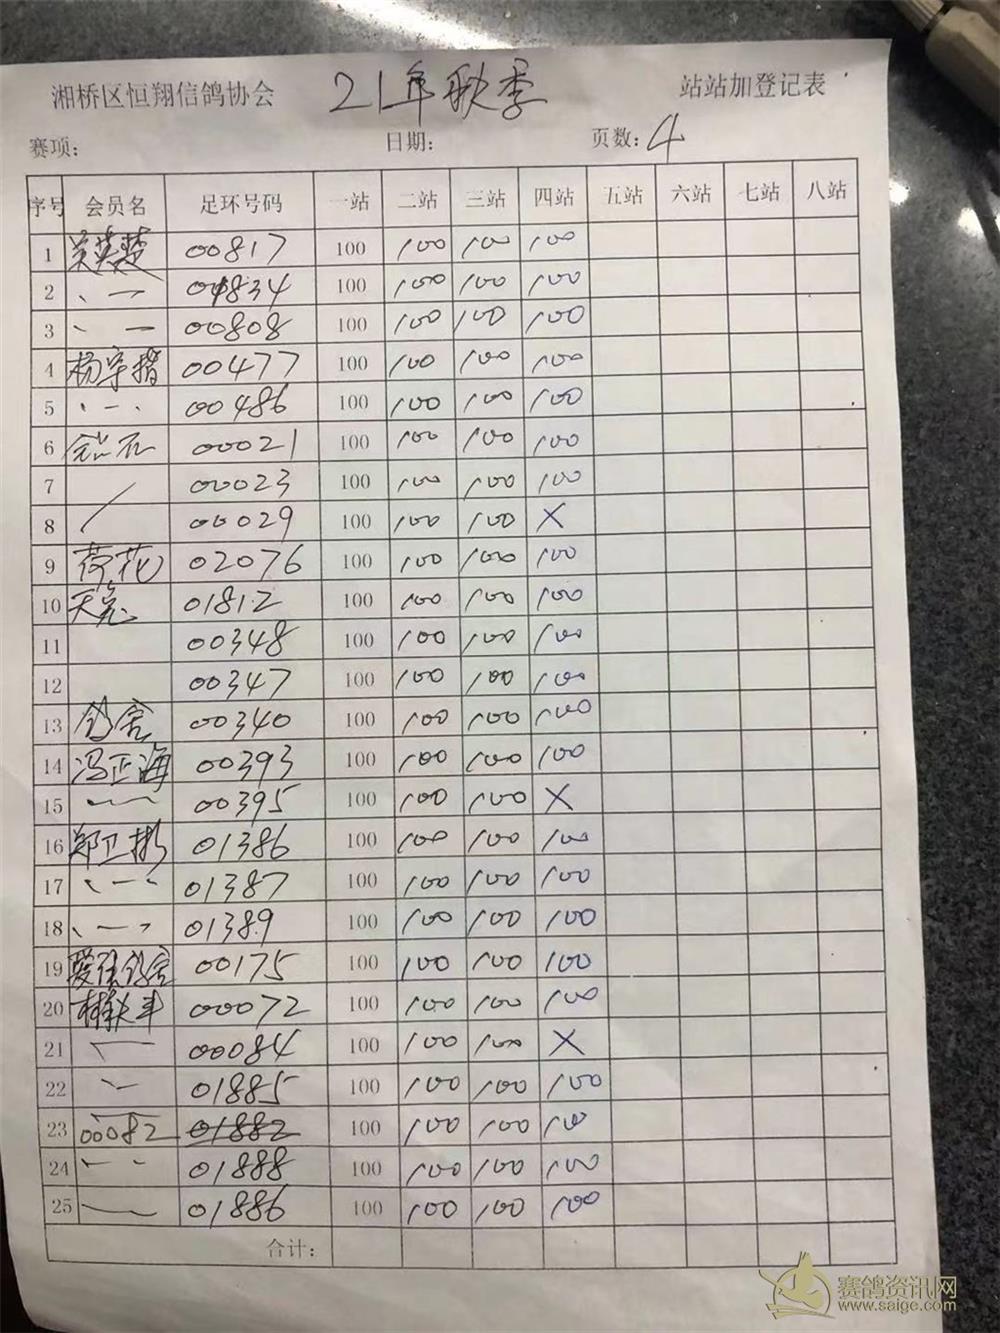 湘桥区恒翔信鸽协会 21年秋季 站站加登记表
赛项: 日期: 页数: 4
序号 会员名 足环号码 一站 二站 三站 四站 五站 六站 七站 八站
1 吴英楚 00817 100 100 100 100
2 、一 00834 100 100 100 100
3 、一 00808 100 100 100 100
4 杨宇 00477 100 100 100 100
5 、一、 00486 100 100 100 100
6 00021 100 100 100 100
7 00023 100 100 100 100
8 00029 100 100 100 ×
9 荷花 02076 100 100 100 100
10 天亮 01812 100 100 100 100
11 00348 100 100 100 100
12 00347 100 100 100 100
13 鸽舍 00340 100 100 100 100
14 冯正海 00393 100 100 100 100
15 00395 100 100 100 ×
16 郑卫彬 01386 100 100 100 100
17 、一、 01387 100 100 100 100
18 、一、 01389 100 100 100 100
19 爱强鸽舍 00175 100 100 100 100
20 00072 100 100 100 100
21 00084 100 100 100 ×
22 01885 100 100 100 100
23 00082 01882 100 100 100 100
24 01888 100 100 100 100
25 01886 100 100 100 100
合计:
赛鸽资讯网
www.saige.com